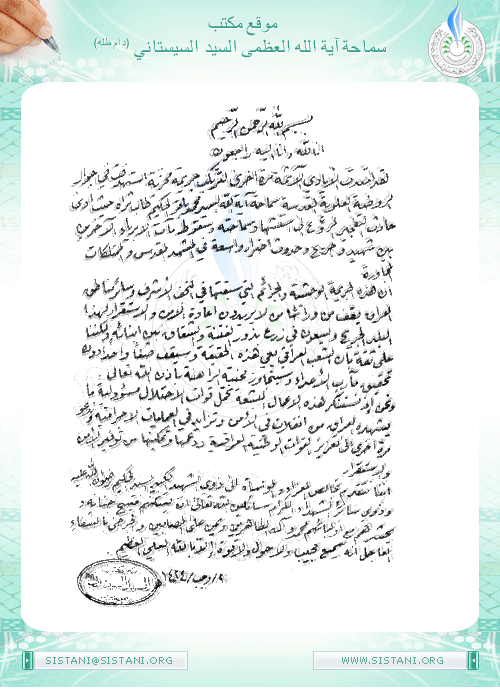 موقع مكتب
سماحة آية الله العظمى السيد السيستاني (دام ظله)
بسم الله الرحمن الرحيم
انا لله وانا اليه راجعون
لقد امتدت الأيادي الآثمة مرة اخرى لترتكب جريمة مخزية استهدفت في جوار
الروضة العلوية المقدسة سماحة آية الله السيد محمد باقر الحكيم طاب ثراه حيث ادى
حادث التفجير المروّع الى استشهاد سماحته وسقوط مئات الابرياء الآخرين
بين شهيد وجريح وحدوث اضرار واسعة في المشهد المقدس والممتلكات
المجاورة
ان هذه الجريمة الوحشية والجرائم التي سبقتها في النجف الأشرف وسائر مناطق
العراق يقف من ورائها من لا يريدون اعادة الأمن والاستقرار لهذا
البلد الجريح ويسعون في زرع بذور الفتنة والشقاق بين ابنائه ولكننا
على ثقة بأن الشعب العراقي يعي هذه الحقيقة وسيقف صفاً واحداً دون
تحقيق مآرب الأعداء وسيتجاوز محنته الراهنة بإذن الله تعالى
ونحن إذ نستنكر هذه الاعمال البشعة نحمّل قوات الاحتلال مسؤولية ما
يشهده العراق من انفلات في الأمن وتزايد في العمليات الاجرامية وندعو
مرة اخرى الى تعزيز القوات الوطنية العراقية ودعمها وتمكينها من توفير الأمن
والاستقرار
اننا نتقدم بخالص العزاء والمواساة الى ذوي الشهيد الكبير السيد الحكيم رضوان الله عليه
وذوي سائر الشهداء الكرام سائلين الله تعالى ان يسكنهم فسيح جنانه و
يحشرهم مع اوليائهم محمد وآله الطاهرين ويمن على المصابين والجرحى بالشفاء
العاجل انه سميع مجيب ولا حول ولا قوة الا بالله العلي العظيم
SISTANI@SISTANI.ORG
WWW.SISTANI.ORG